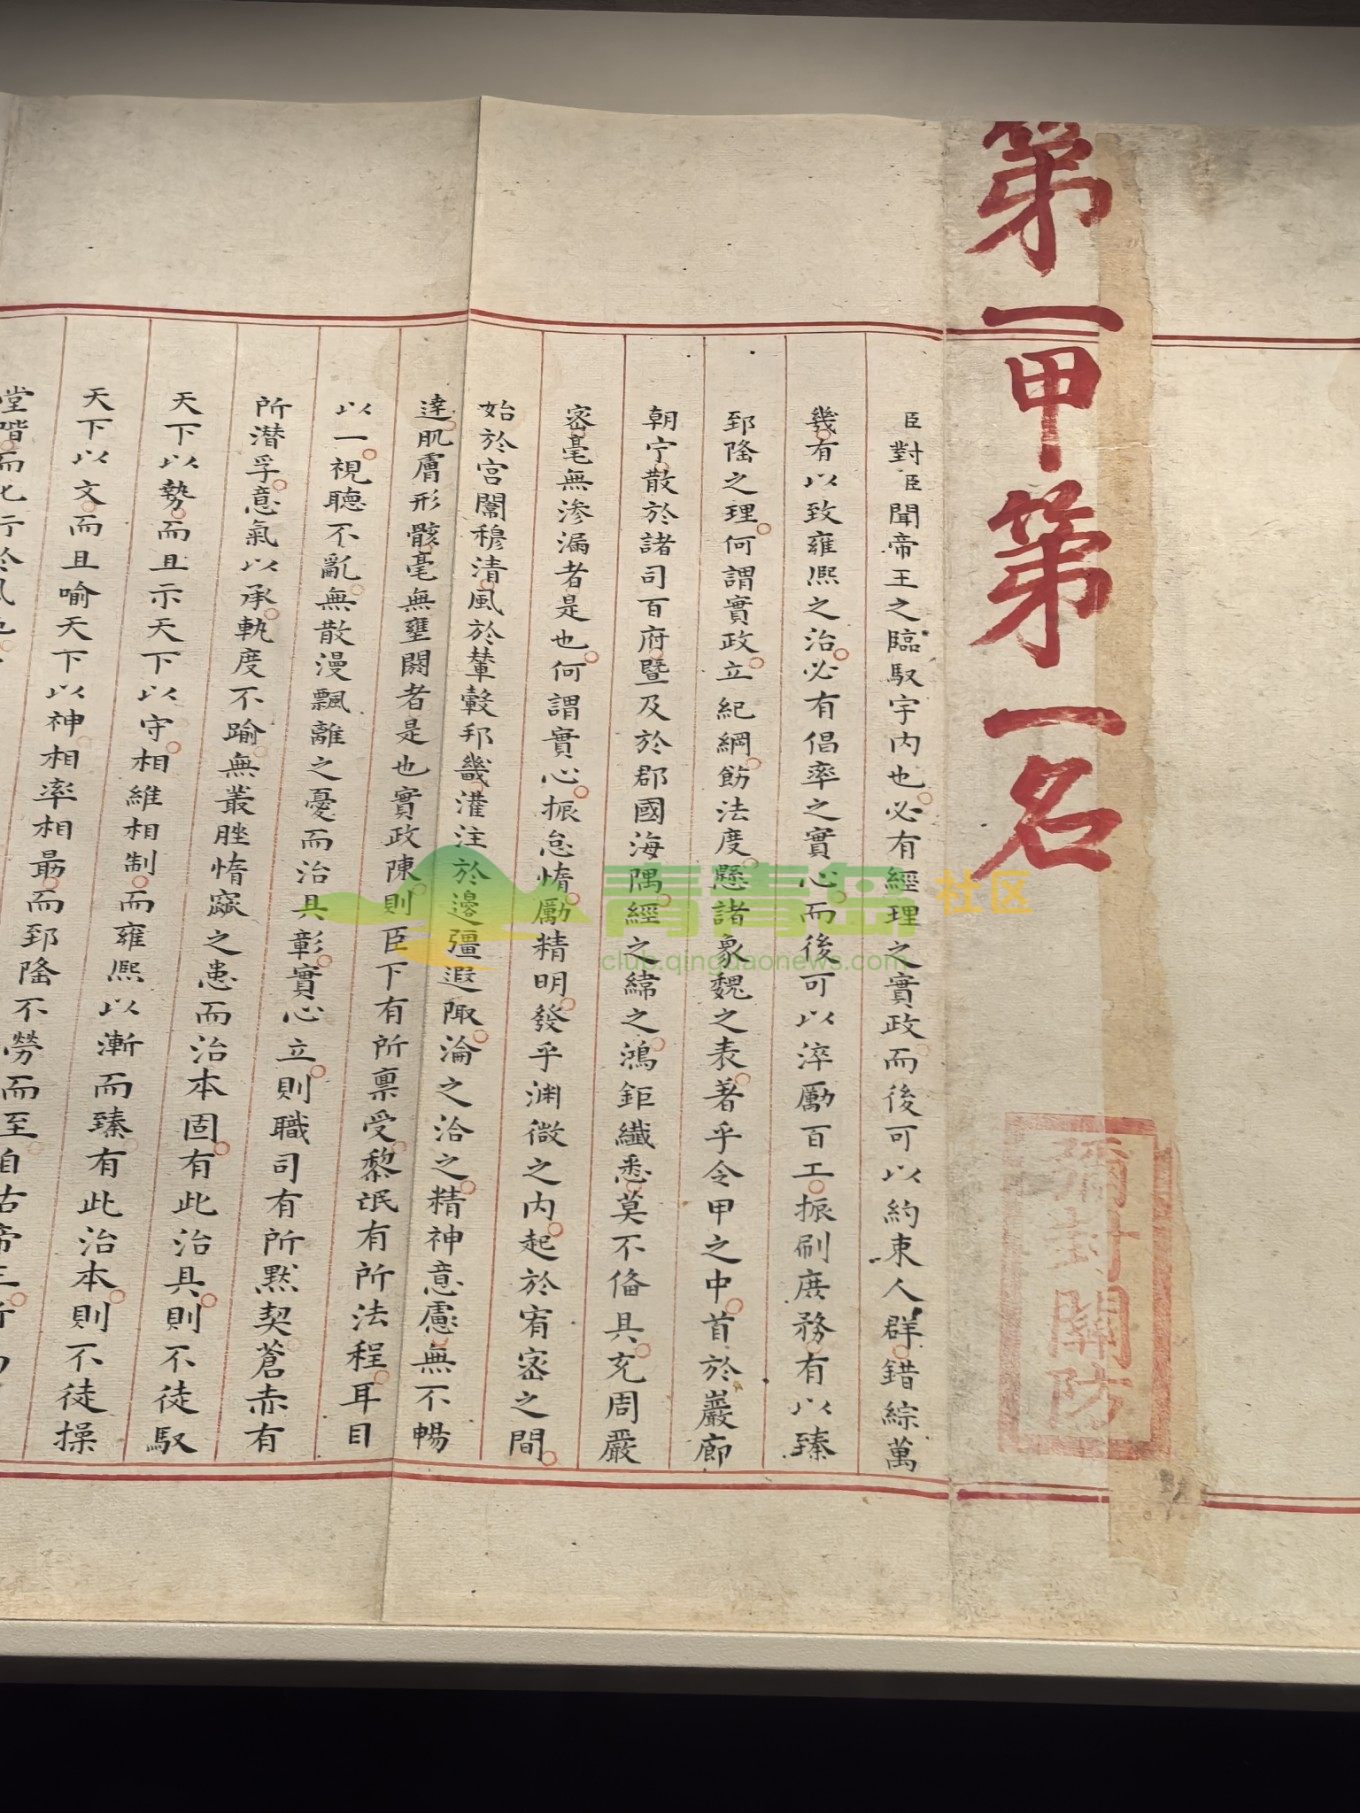 第一甲第一名
彌封關防
臣對臣聞帝王之臨馭宇內也必有經理之實政而後可以約束人群錯綜萬
幾有以致雍熙之治必有倡率之實心而後可以淬勵百工振刷庶務有以臻
郅隆之理何謂實政立紀綱飭法度懸諸象魏之表著乎令甲之中首於巖廊
朝宁散於諸司百府暨及於郡國海隅經之緯之鴻鉅纖悉莫不偹具充周嚴
密毫無滲漏者是也何謂實心振怠惰勵精明發乎渊微之內起於宥密之間
始於宮闈穆清風於輦轂邦畿灌注於邊疆遐陬淪之洽之精神意慮無不暢
達肌膚形骸毫無壅閼者是也實政陳則臣下有所禀受黎氓有所法程耳目
以一視聽不亂無散漫飄離之憂而治具彰實心立則職司有所默契蒼赤有
所潛孚意氣以承軌度不踰無叢脞惰窳之患而治本固有此治具則不徒馭
天下以勢而且示天下以守相維相制而雍熙以漸而臻有此治本則不徒操
天下以文而且喻天下以神相率相勗而郅隆不勞而至自古帝王所
堂階而化行於風也
青青岛社区
club.qingdaonews.com